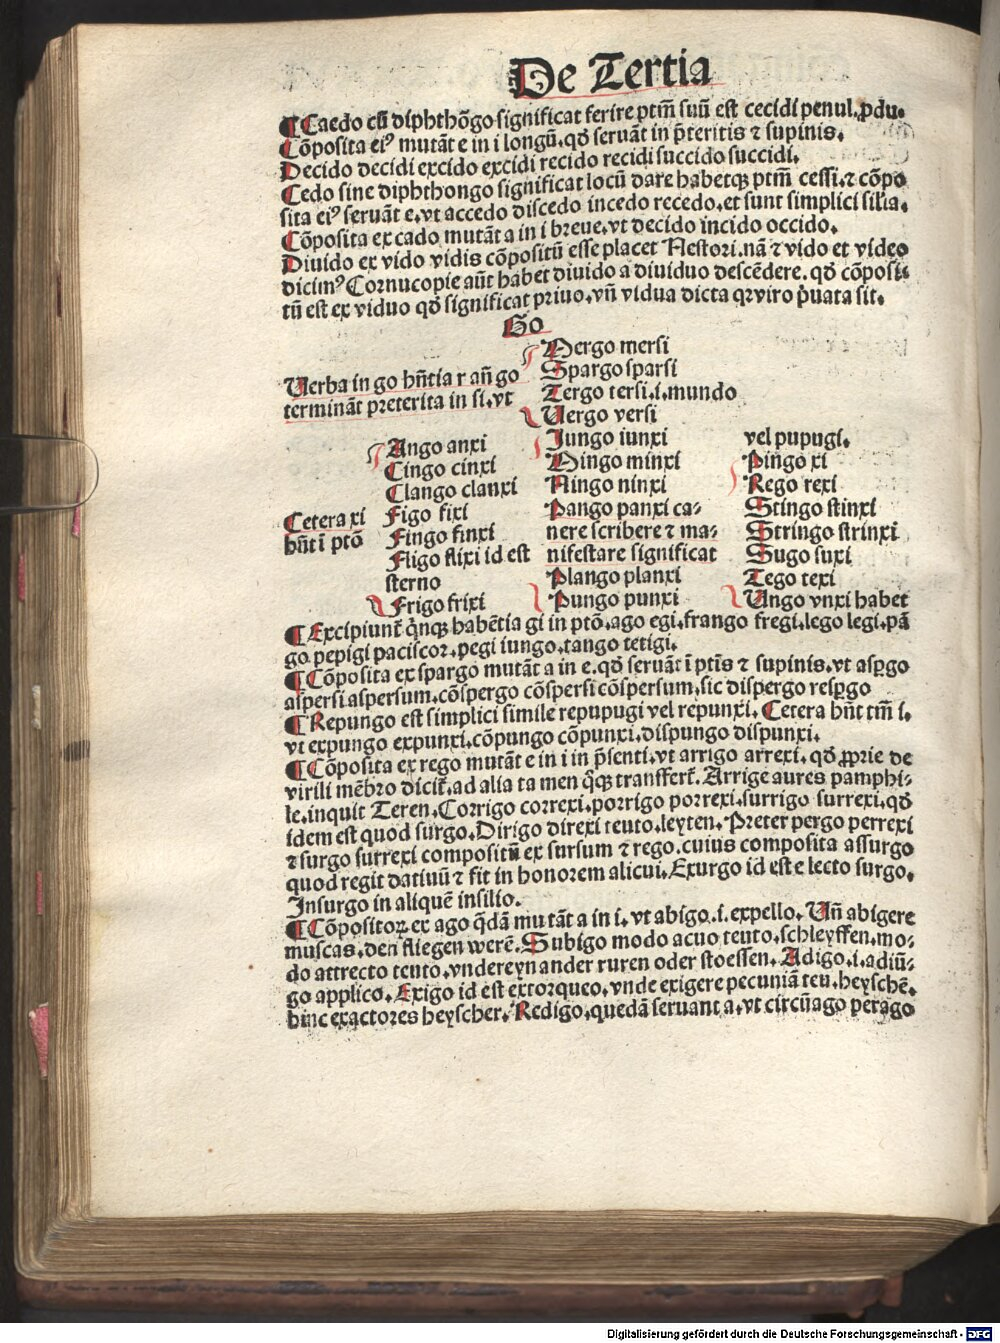 De Tertia
¶ Caedo cū diphthōgo significat ferire ptm̄ suū est cecidi penul. ꝓdu.
Cōposita eiꝰ mutāt e in i longū. qď seruāt in p̄teritis ⁊ supinis.
Decido decidi excido excidi recido recidi succido succidi.
Cedo sine diphthongo significat locū dare habetqꝫ ptm̄ cessi. ⁊ cōpo
sita eiꝰ seruāt e. vt accedo discedo incedo recedo. et sunt simplici silia.
Cōposita ex cado mutāt a in i breue. vt decido incido occido.
Diuido ex vido vidis cōpositū esse placet Nestori. nā ⁊ vido et video
dicimꝰ Cornucopie aūt habet diuido a diuiduo descēdere. qď cōposi-
tū est ex viduo qď significat priuo. vn̄ vidua dicta qꝛ viro p̄uata sit.
Go
Verba in go hn̄tia r an̄ go
termināt preterita in si. vt
Mergo mersi
Spargo sparsi
Tergo tersi. i. mundo
Vergo versi
Cetera xi
hn̄t ī ptō
Ango anxi
Cingo cinxi
Clango clanxi
Figo fixi
Fingo finxi
Fligo flixi id est
sterno
Frigo frixi
Jungo iunxi
Mingo minxi
Ningo ninxi
Pango panxi ca-
nere scribere ⁊ ma-
nifestare significat
Plango planxi
Pungo punxi
vel pupugi.
Pingo xi
Rego rexi
Stingo stinxi
Stringo strinxi
Sugo suxi
Tego texi
Ungo vnxi habet
¶ Excipiunt̄ q̇nqꝫ habētia gi in ptō. ago egi. frango fregi. lego legi. pā
go. pepigi paciscor. pegi iungo. tango tetigi.
¶ Cōposita ex spargo mutāt a in e. qď seruāt ī ptīs ⁊ supinis. vt aspgo
aspersi aspersum. cōspergo cōspersi cōspersum. sic dispergo respgo
¶ Repungo est simplici simile repupugi vel repunxi. Cetera hn̄t tm̄ i.
vt expungo expunxi. cōpungo cōpunxi. dispungo dispunxi.
¶ Cōposita ex rego mutāt e in i in p̄senti. vt arrigo arrexi. qď ꝓprie de
virili mēbro dicit̄. ad alia ta men q̇qꝫ transffert̄. Arrige aures pamphi-
le. inquit Teren. Corrigo correxi. porrigo porrexi. surrigo surrexi. qď
idem est quod surgo. Dirigo direxi teuto. leyten. Preter pergo perrexi
⁊ surgo surrexi compositū ex sursum ⁊ rego. cuius composita assurgo
quod regit datiuū ⁊ fit in honorem alicui. Exurgo id est e lecto surgo.
Insurgo in aliquē insilio.
¶ Cōpositoꝝ ex ago q̄dā mutāt a in i. vt abigo. i. expello. Un̄ abigere
muscas. den fliegen werē. Subigo modo acuo teuto. schleyffen. mo-
do attrecto teuto. vndereynander ruren oder stoessen. Adigo. i. adiū-
go applico. Exigo id est extorqueo. vnde exigere pecuniā teu. heyschē.
hinc exactores heyscher. Redigo. quedā seruant a. vt circūago perago
Digitalisierung gefördert durch die Deutsche Forschungsgemeinschaft - DFG